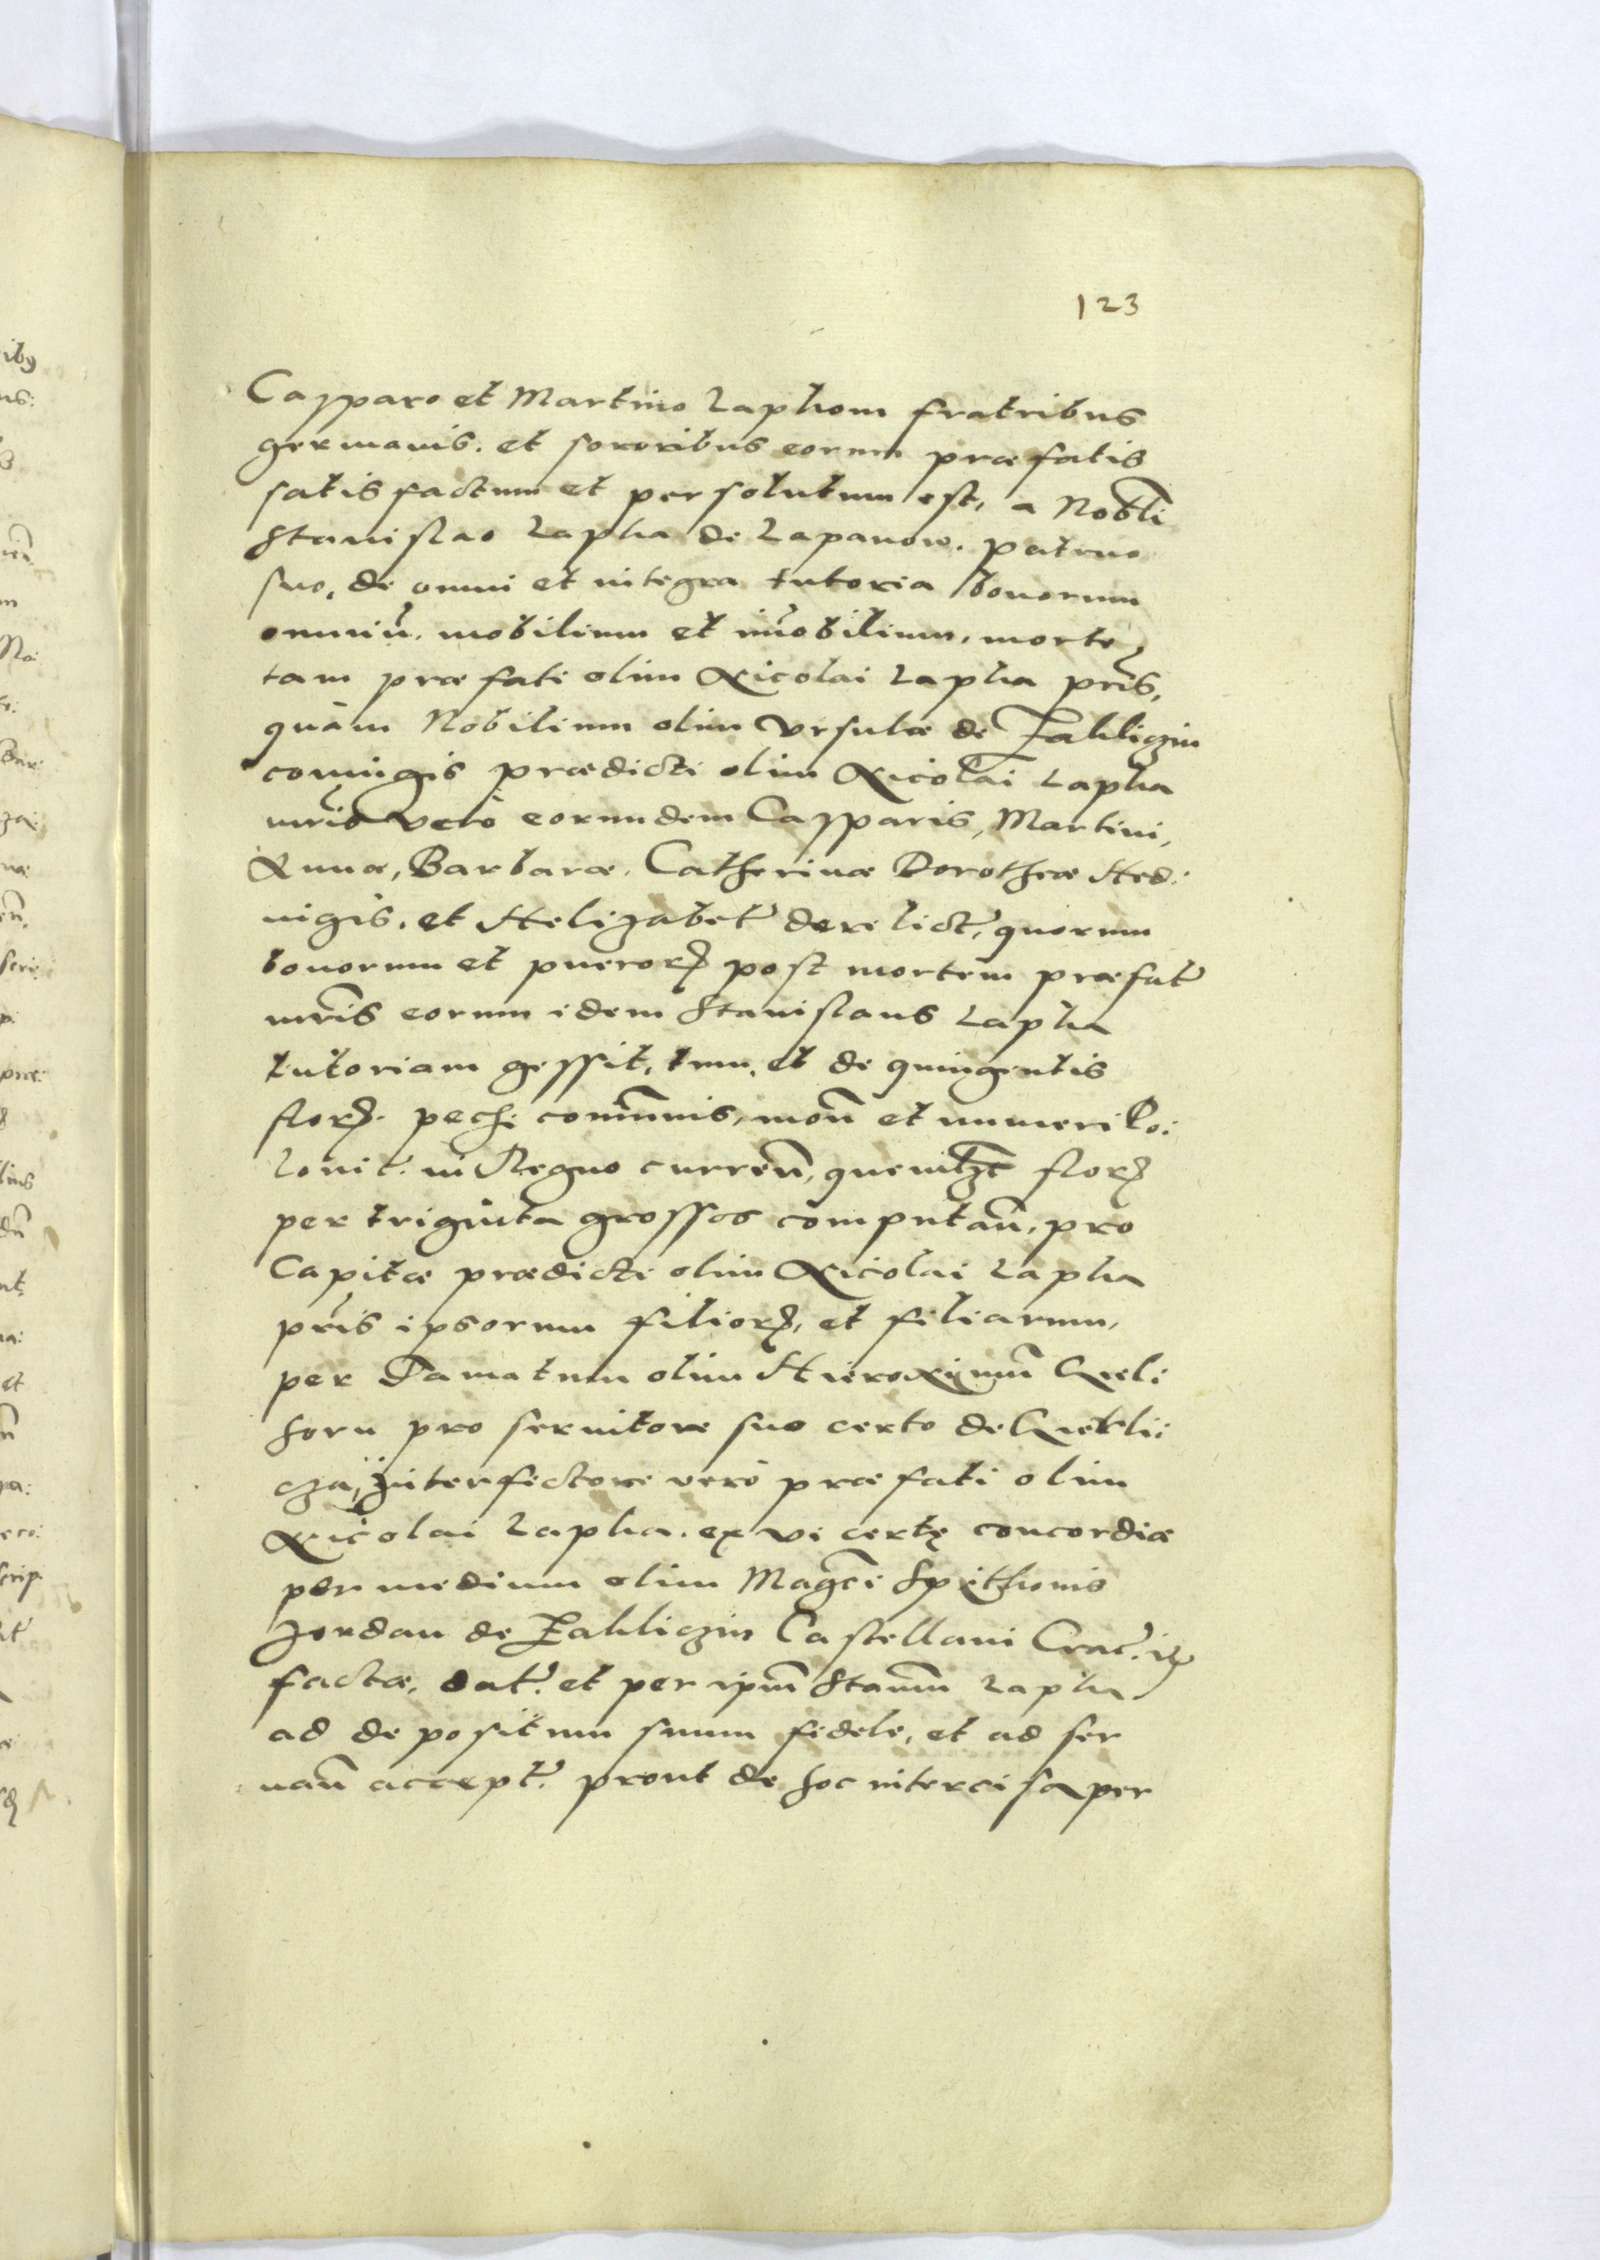 123
Casparo et Martino Laphom fratribus
germanis. et sororibus eorum præfatis
satis factum et persolutum est, a Nobli
Stanislao Lapha de Lapanow. patruo
suo, de omni et integra tutoria bonorum
omniū, mobilium et im̄obilium, morte
tam præfati olim Nicolai Lapha pr̄is,
quàm Nobilium olim Vrsulæ de Zakliczin
coniugis prædicti olim Nicolai Lapha
mr̄is verò eorundem Casparis, Martini,
Annæ, Barbaræ, Catherinæ Dorotheæ Hed:
uigis, et Helizabet derelict, quorum
bonorum et pueror post mortem præfat
mr̄is eorum idem Stanislaus Lapha
tutoriam gessit, tum, et de quingentis
flor. pech: com̄unis, mon̄ et numeri Po:
lonic. in Regno curren̄, quemlzt flor
per triginta grossos computan̄, pro
Capitæ prædicti olim Nicolai Lapha
pr̄is ipsorum filior, et filiarum,
per Famatum olim Hieronimū Gieli
horn pro seruitore suo certo de
czaÿ, interfectore verò præfati olim
Nicolai Lapha. ex vi certę concordiæ
per medium olim Magci Spithonis
Jordan de Zakliczin Castellani Crac.
factæ, dat. et per ipm̄ Stanm̄ Lapha
ad depositum suum fidele, et ad ser
uan̄ accept. prout de hoc intercisa per